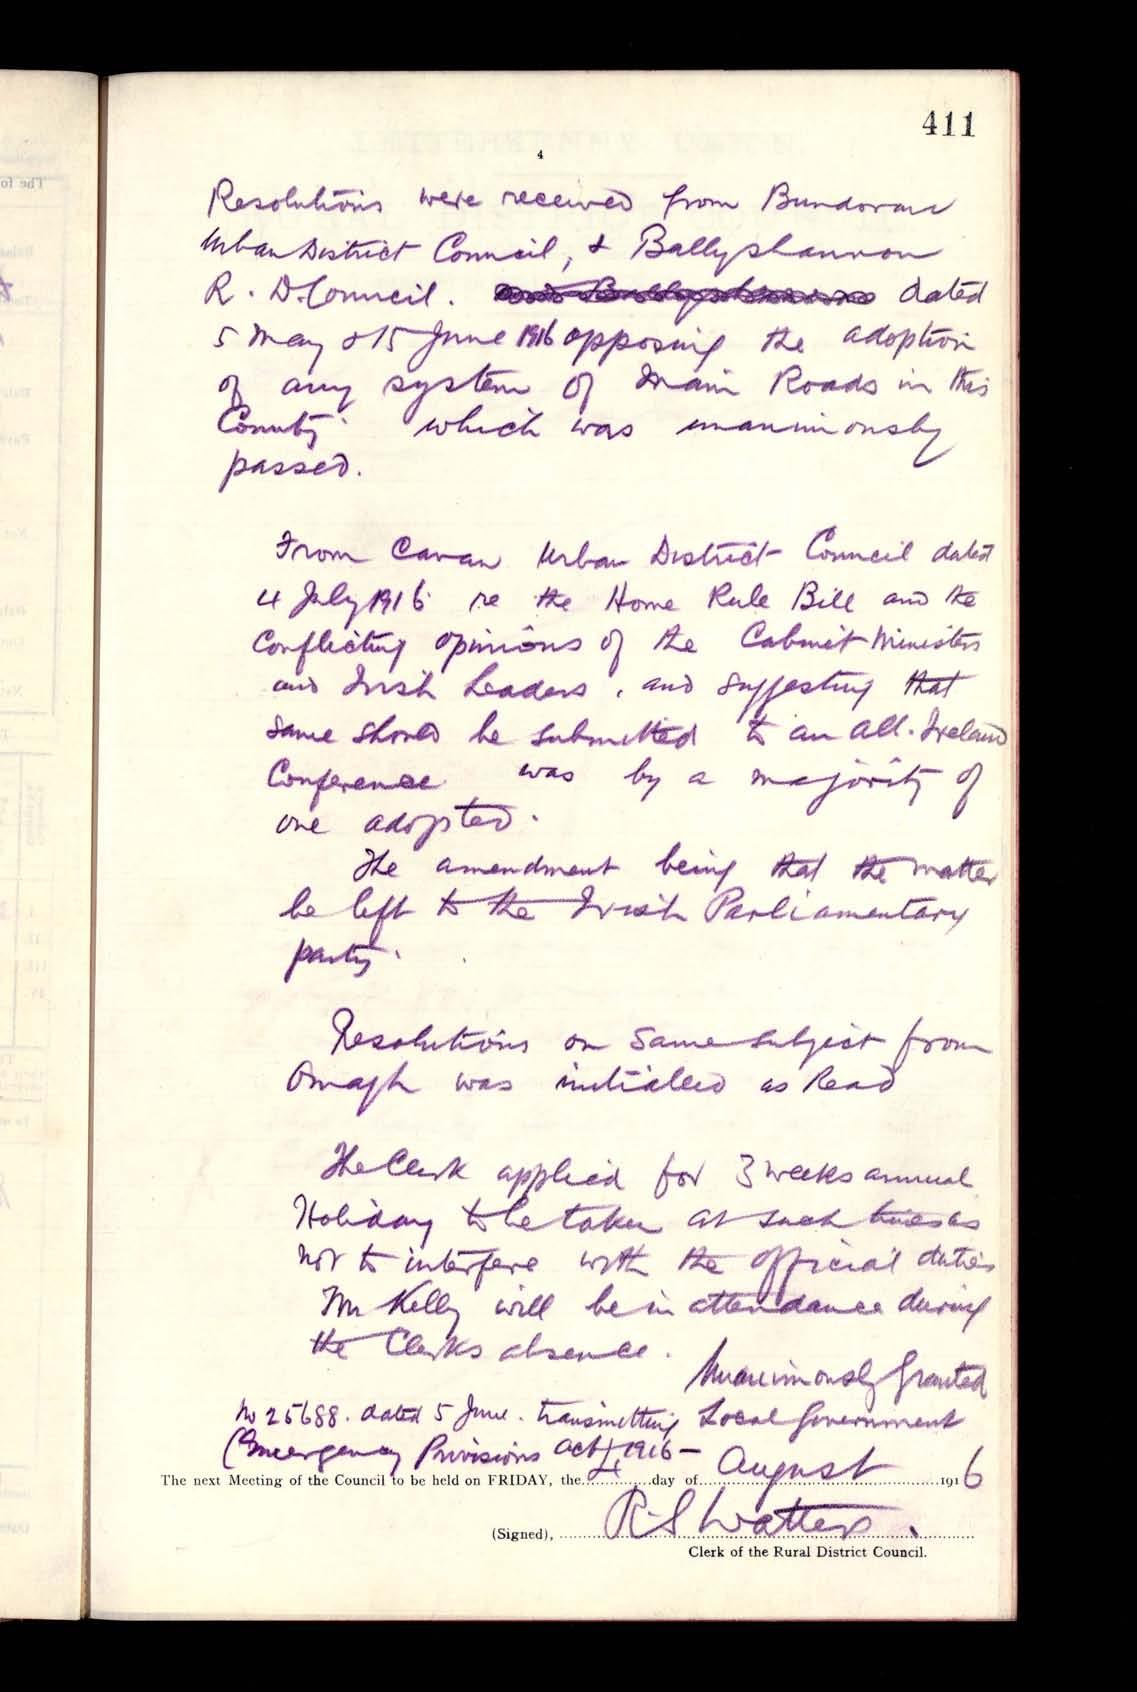 411
4
Resolutions were received from Bundoran
Urban District Council, & Ballyshannon
R. D. Council. and Ballyshannon dated
5 May & 15 June 1916 opposing the adoption
of any system of Main Roads in this
County. which was unanimously
passed.
From Cavan Urban District Council dated
4 July 1916 re the Home Rule Bill and the
Conflicting opinions of the Cabinet Ministers
and Irish Leaders, and suggesting that
same should be submitted to an All-Ireland
Conference was by a majority of
one adopted.
The amendment being that the matter
be left to the Irish Parliamentary
party.
Resolutions on same subject from
Omagh was initialled as Read
The Clerk applied for 3 weeks annual
Holiday to be taken at such times as
not to interfere with the official duties
Mr Kelly will be in attendance during
the Clerks absence.
Unanimously Granted
No 25688. dated 5 June. transmitting Local Government
(Emergency Provisions Act), 1916 -
The next Meeting of the Council to be held on FRIDAY, the 4 day of August 1916
(Signed), R S Watters.
Clerk of the Rural District Council.